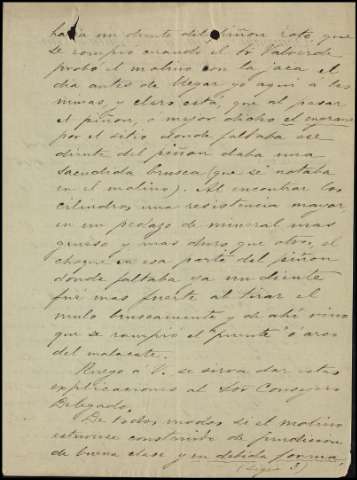 había un diente del piñon roto, que
se rompió cuando el Sr Valverde
probó el molino con la jaca el
dia antes de llegar yo aquí á las
minas, y claro está, que al pasar
el piñon, ó mejor dicho el engrane
por el sitio donde faltaba ese
diente del piñon daba una
sacudida brusca (que se notaba
en el molino). Al encontrar los
cilindros una resistencia mayor,
en un pedazo de mineral mas
grueso y mas duro que otros, el
choque en esa parte del piñon
donde faltaba ya un diente
fué mas fuerte al tirar el
mulo bruscamente y de ahí vino
que se rompió el puente ó aro
del malacate.
Ruego á V. se sirva dar estas
explicaciones al Sor Consejero
Delegado.
De todos modos si el molino
estuviese construido de fundicion
de buena clase y en debida forma,
(sigue 3)